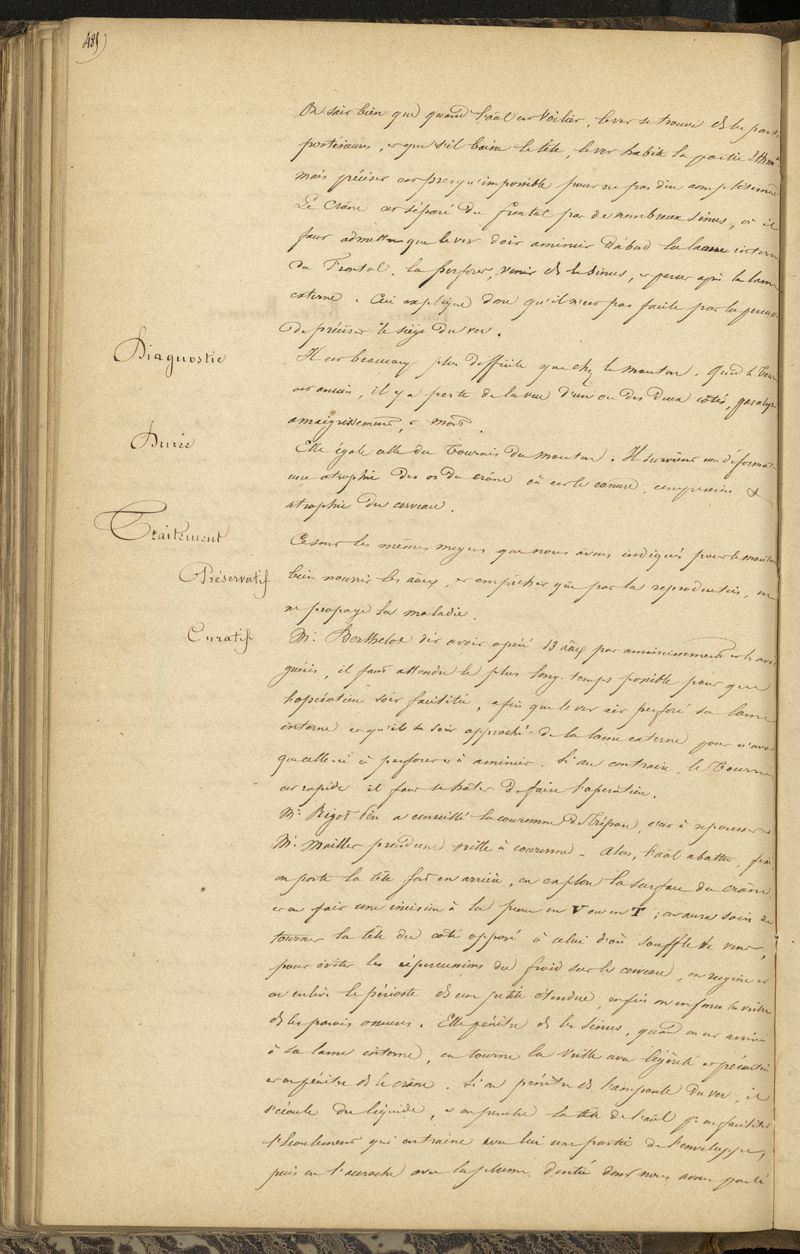 481)
On sait bien que quand l'aâl est Voilier, le ver se trouve ds les part.
postérieures, et que s'il baisse la tête, le ver habite la partie
mais préciser est presqu'impossible pour ne pas dire complètement
Le Crâne est séparé du frontal par de nombreux sinus, or il
faut admettre que le ver doit amincir d'abord la lame intern
du Frontal, la perforer, venir ds le sinus, et percer après la lame
externe. Ceci explique donc qu'il n'est pas facile par la
de préciser le siège du ver.
Diagnostic
Il est beaucoup plus difficile que chez le mouton. Quand le Tour
est ancien, il y a perte de la vue d'un ou des deux côtés, paralys
amaigrissement, et mort.
Durée
Elle égale celle du Tournis du mouton. Il survient une déformat
une atrophie des os du crâne où est le cœnure, compression &
atrophie du cerveau.
Traitement
Ce sont les mêmes moyens que nous avons indiqués pour le mouton
Préservatif
bien nourrir les aâux, et empêcher que par la reproduction, on
ne propage la maladie.
Curatif
Mr. Berthelot dit avoir opéré 13 aâux par amincissement et les avoir
guéris, il faut attendre le plus long-temps possible pour que
l'opération soit facilitée, afin que le ver ait perforé sa lame
interne et qu'il se soit approché de la lame externe pour n'avoir
que celle-ci à perforer et à amincir. Si au contraire, le Tourni
est rapide il faut se hâter de faire l'opération.
Mr. Rigot père a conseillé la couronne de trépan, c'est à repousser
Mr. Maillet prend une vrille à couronne. Alors, l'aâl abattu,
on porte la tête fort en arrière, on explore la surface du crâne
et on fait une incision à la peau en V ou en T; on aura soin de
tourner la tête du côté opposé à celui d'où souffle le vent,
pour éviter les répercussions du froid sur le cerveau, on rugine et
on enlève le périoste ds une petite étendue, enfin on enfonce la vrille
ds les parois osseuses. Elle pénètre ds les sinus, quand on est arrivé
à sa lame interne, on tourne la vrille avec légèreté et précaution
et on pénètre ds le crâne. Si on pénètre ds l'ampoule du ver, il
s'écoule du liquide, et on penche la tête de l'aâl pr en faciliter
l'écoulement qui entraîne avec lui une partie de l'enveloppe,
puis on l'accroche avec la plume dentée dont nous avons parlé